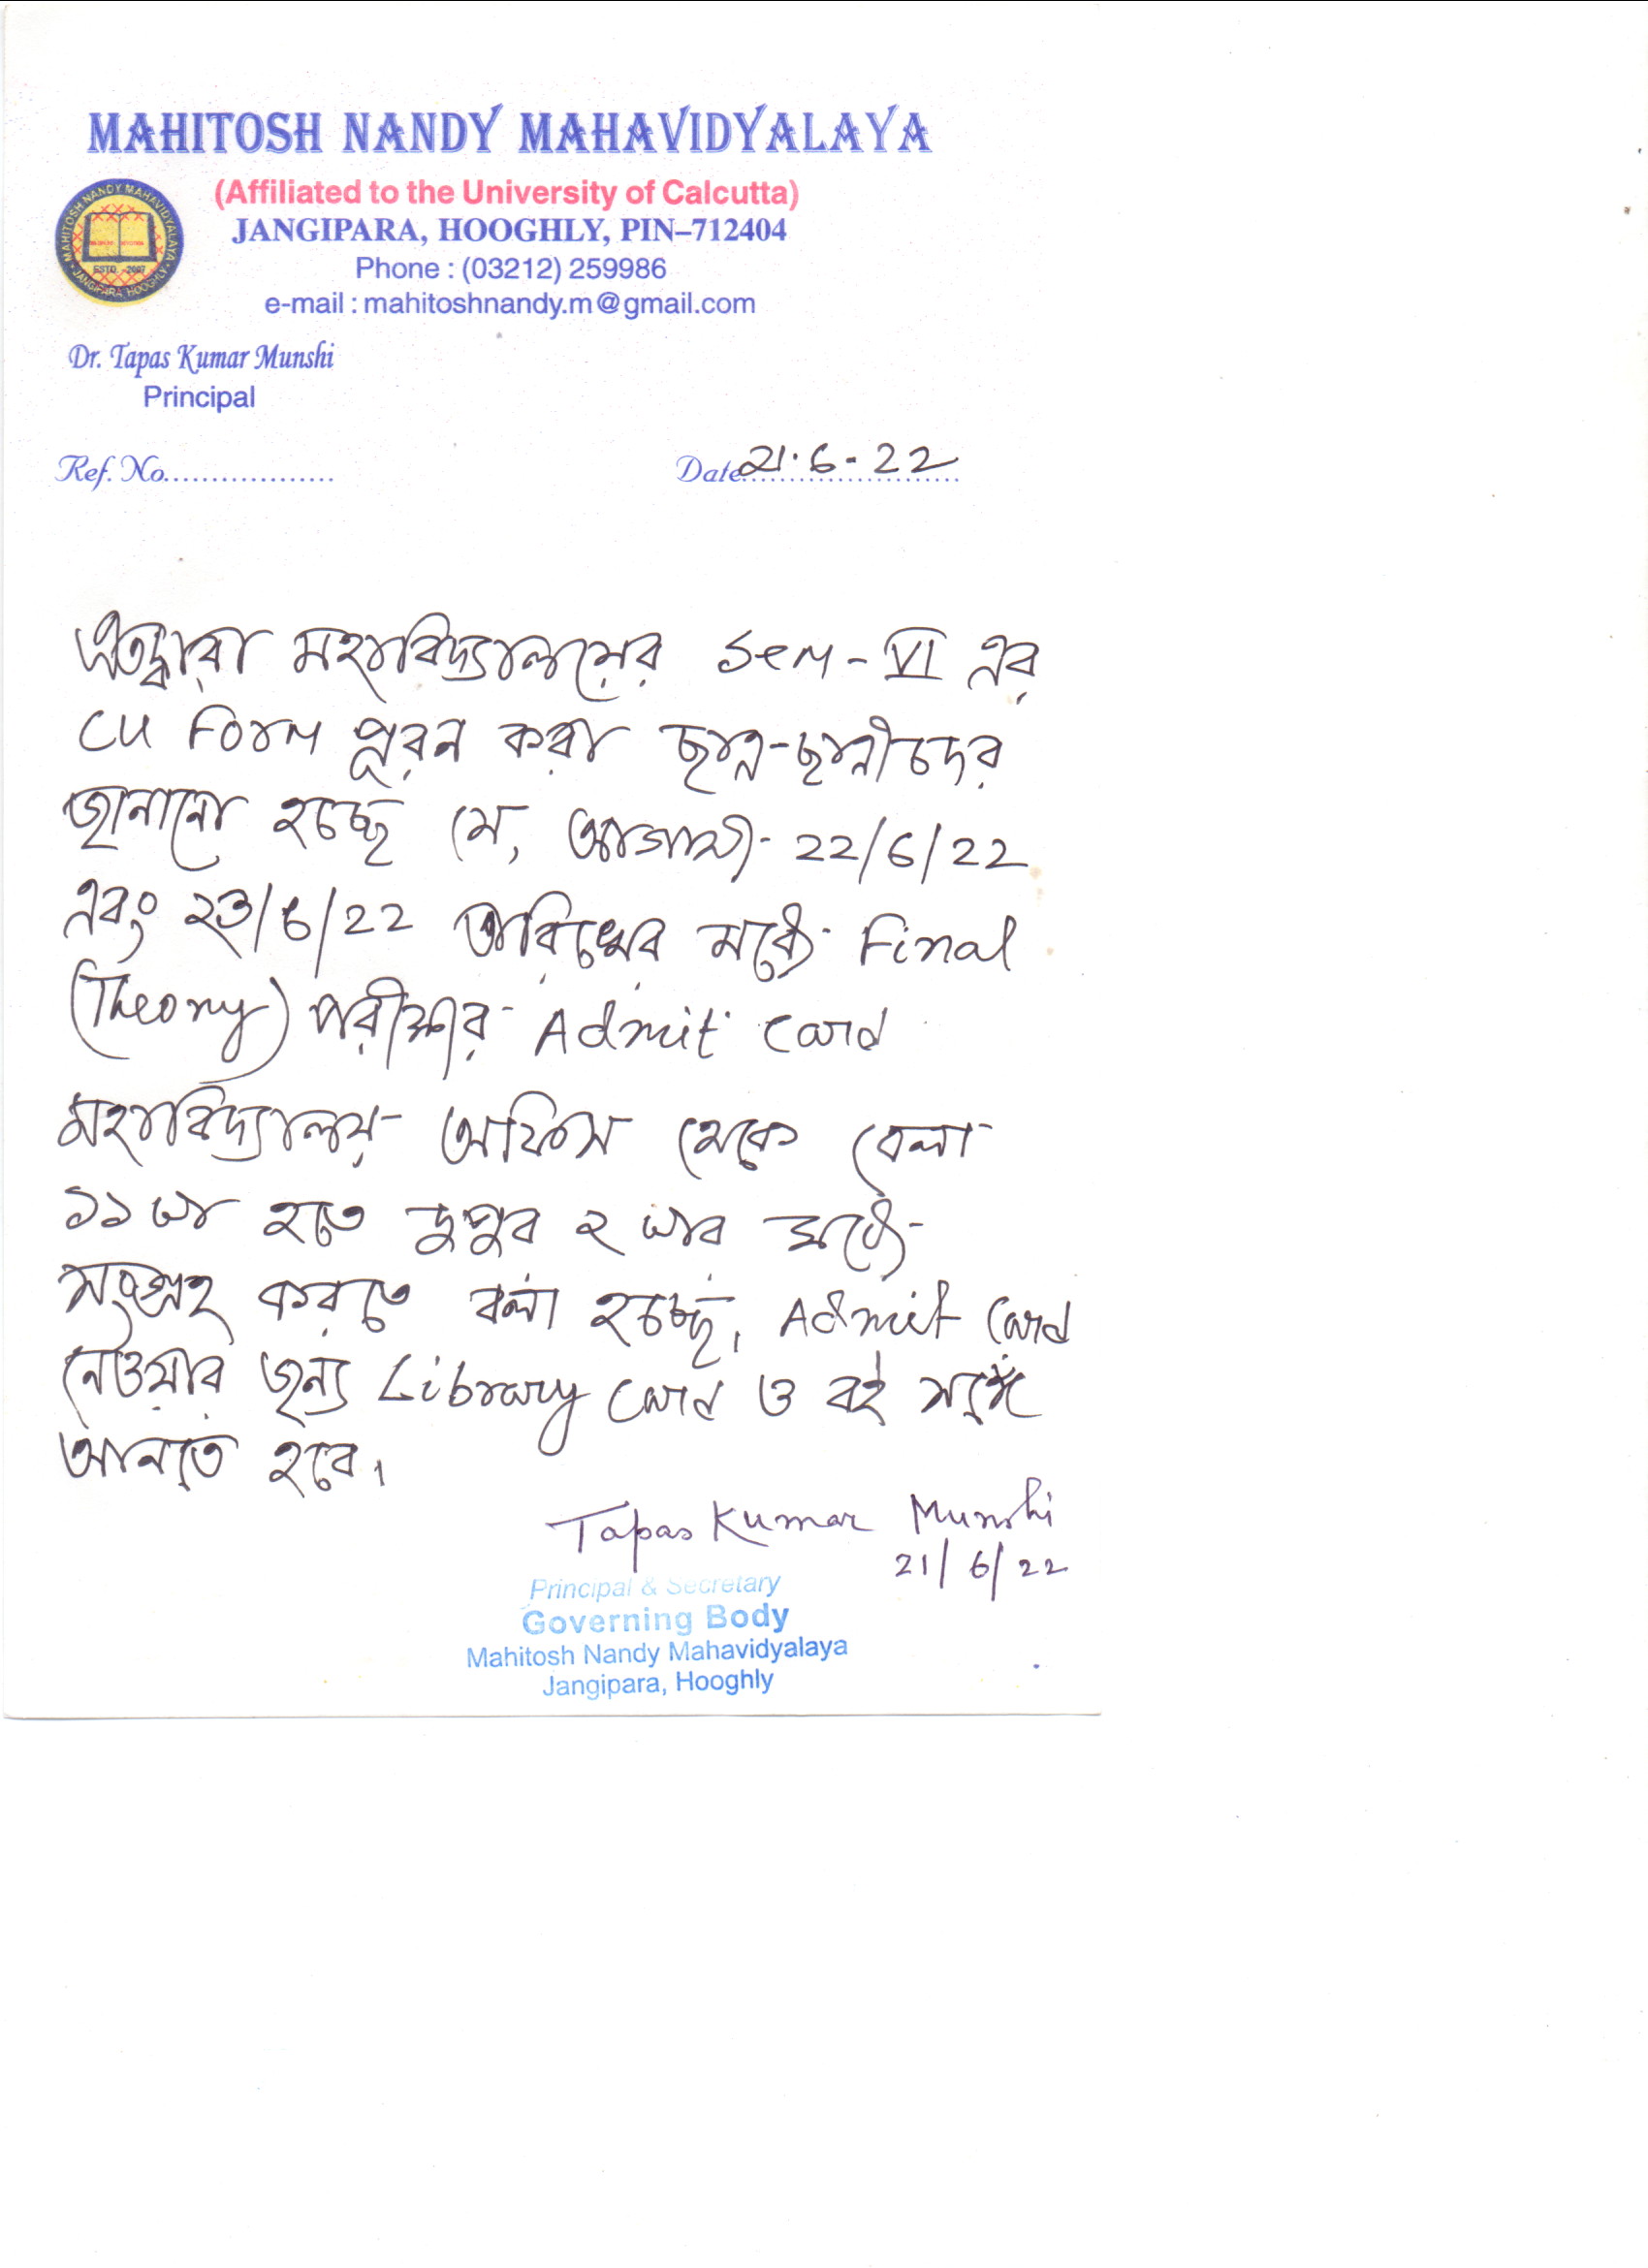 MAHITOSH NANDY MAHAVIDYALAYA
(Affiliated to the University of Calcutta)
JANGIPARA, HOOGHLY, PIN–712404
Phone : (03212) 259986
e-mail : mahitoshnandy.m@gmail.com
MAHITOSH NANDY MAHAVIDYALAYA
ESTD. - 2007
JANGIPARA HOOGHLY
Dr. Tapas Kumar Munshi
Principal
Ref. No..................
Date 21.6-22
এতদ্বারা মহাবিদ্যালয়ের Sem-VI এর
CU Form পূরন করা ছাত্র-ছাত্রীদের
জানানো হচ্ছে যে, আগামী 22/6/22
এবং ২৩/6/22 তারিখের মধ্যে Final
(Theory) পরীক্ষার Admit Card
মহাবিদ্যালয় অফিস থেকে বেলা
১১ টা হতে দুপুর ২ টার মধ্যে
সংগ্রহ করতে বলা হচ্ছে। Admit Card
নেওয়ার জন্য Library Card ও বই সঙ্গে
আনতে হবে।
Tapas Kumar Munshi
21/6/22
Principal & Secretary
Governing Body
Mahitosh Nandy Mahavidyalaya
Jangipara, Hooghly